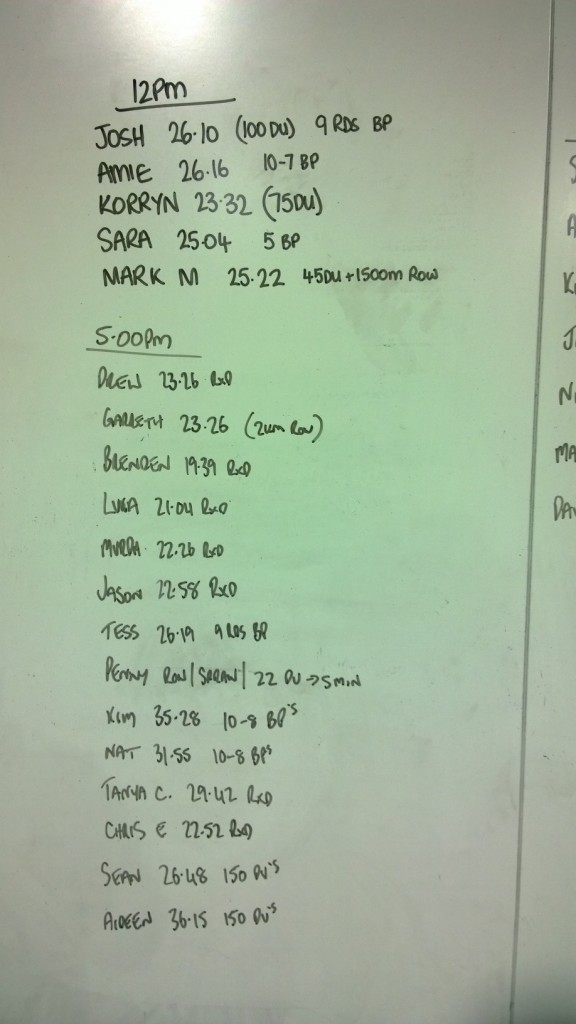 12Pm
JOSH 26.10 (100DU) 9 RDS BP
AMIE 26.16 10-7 BP
KORRYN 23.32 (75DU)
SARA 25.04 5 BP
MARK M 25.22 45DU+1500m Row
5.00Pm
DREW 23.26 RxD
GARRETH 23.26 (2km Row)
BRENDEN 19.39 RxD
LUKA 21.04 RxD
MURDA 22.26 RxD
JASON 22.58 RxD
TESS 26.19 9 RDS BP
PENNY ROW/ /22 DU→5MIN
KIM 35.28 10-8 BP'S
NAT 31.55 10-8 BP's
TANYA C. 29.42 RxD
CHRIS E 22.52 RxD
SEAN 26.48 150 DU'S
AIDEEN 36.15 150 DU'S
S
A
K
J
N
MA
DAV